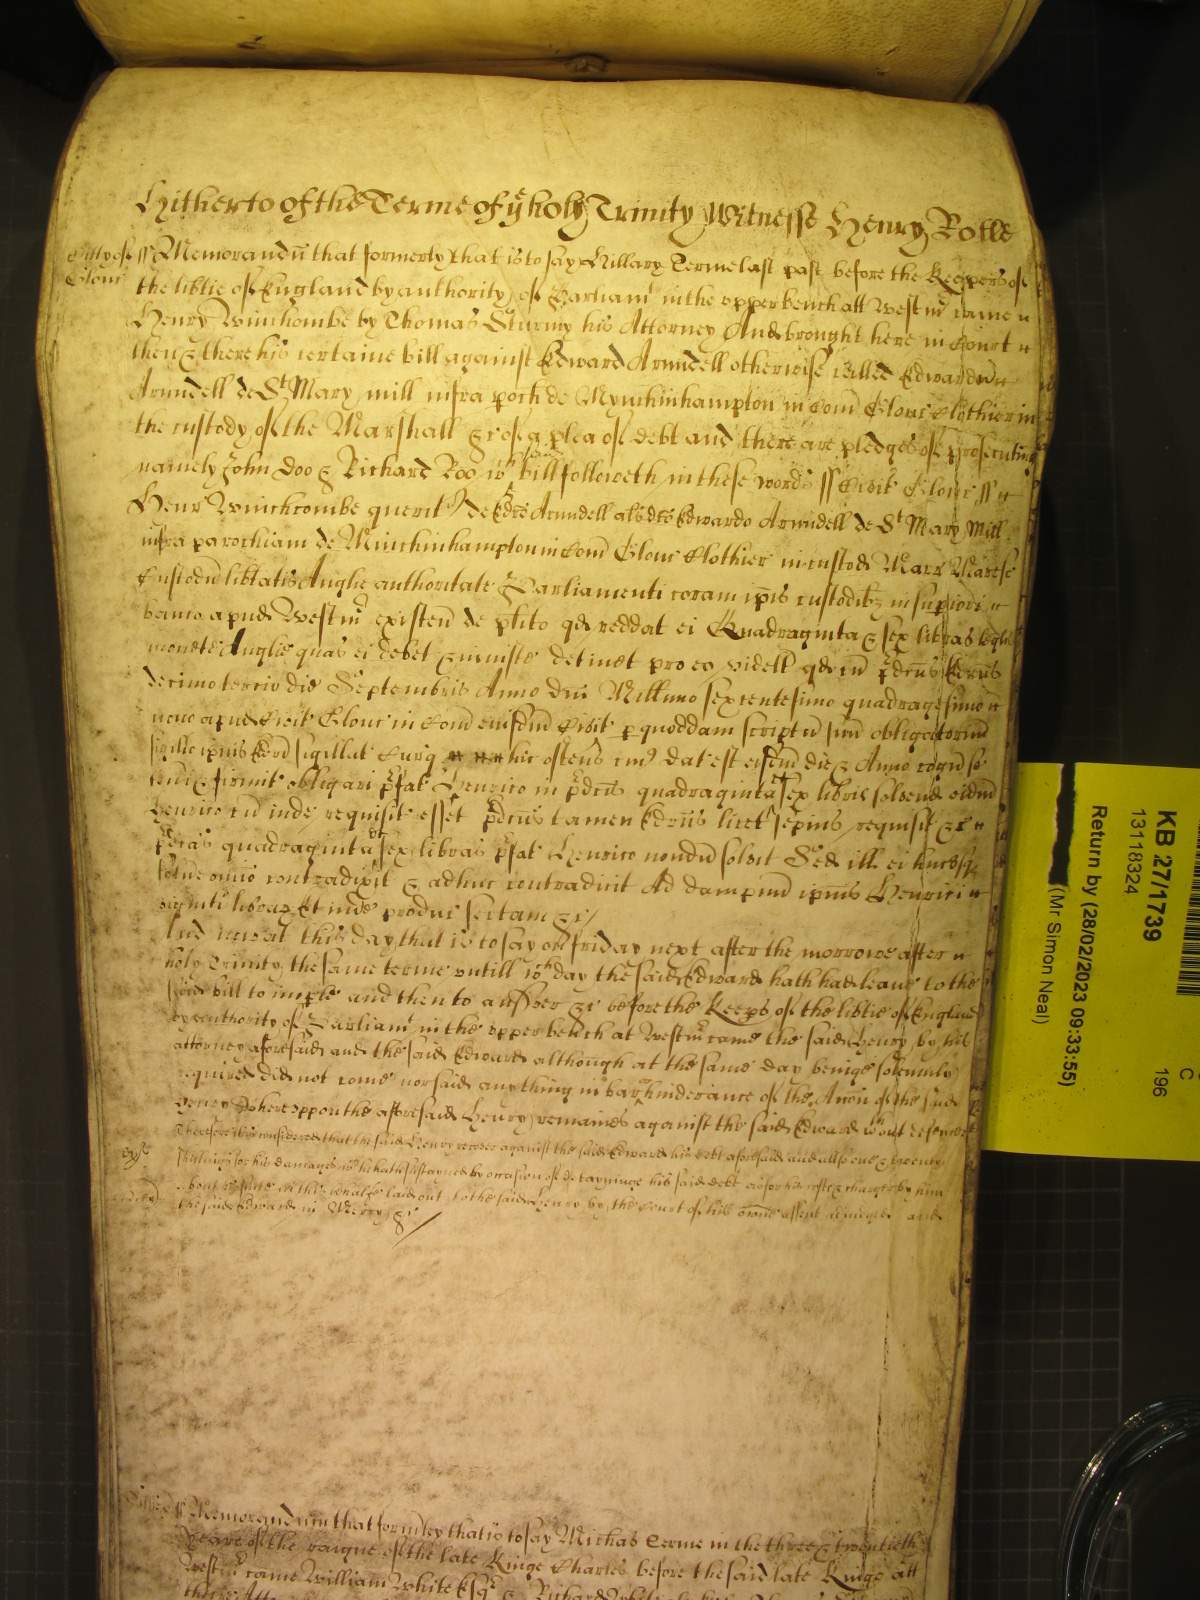 Hitherto of the Terme of ye holy Trinity Witnesse Henry Rolle
Citty of Glouc ss Memorandu that formerly that is to say Hillary Terme last past before the Keepers of
the libtie of England by authority of Parliamt in the upper bench att Westm came
Henry Winchcombe by Thomas Sturmy his Attorney And brought here in Court
then & there his certaine bill against Edward Arundell otherwise called Edwardu
Arundell de St Mary mill infra poch de Mynchinhampton in Com Glouc Clothier in
the custody of the Marshall &c of a plea of debt and there are pledges of prosecution
namely John Doo & Richard Roo wch bill followeth in these words ss Civit Glouc ss
Henr Winchcombe querit de Edro Arundell als dco Edwardo Arundell de St Mary Mill
infra parochiam de Minchinhampton in Com Glouc Clothier in custod Marr Maresc
Custodu libtatis Anglie authoritate Parliamenti coram ipis custodibz in supiori
banco apud Westm existen de plito qd reddat ei Quadraginta & sex libras leglis
monete Anglie quas ei debet & iniuste detinet pro eo videlt qd cu pdcus Edrus
decimo tercio die Septembris Anno Dni Millimo sexcentesimo quadragesimo
nono apud Civit Glouc in Com eiusdm Civit p quoddam scriptu suu obligatorium
sigillo ipius Edri sigillat Curq hic ostens cui dat est eisdm die & Anno cogn se
teneri & firmit obligari pfat Henrico in pdcis quadraginta et sex libris solvend eidm
Henrico cu inde requisit esset pdcus tamen Edrus licet sepius requisit &c
pdcas quadraginta et sex libras pfat Henrico nondu solvit Sed ill ei hucusq
solve omio contradixit & adhuc contradicit Ad dampnu ipius Henrici
viginti libraz Et inde produc sectam &c
And now at this day that is to say on friday next after the morrowe after
holy Trinity the same terme untill wch day the said Edward hath had leave to the
said bill to imple and then to answer &c before the Keeps of the libtie of England
by authority of Parliamt in the upper bench at Westm came the said Henry by his
attorney aforesaid and the said Edward although at the same day beinge solemnly
required did not come nor said anything in bar & hinderance of the Accon of the said
Henry Whereuppon the aforesaid Henry remaines against the said Edward wthout defence
Therefore it is considered that the said Henry recover against the said Edward his debt aforesaid and also one & twenty
shillings for his damages wch he hath sustayned by occasion of detayninge his said debt as for his costs & charges by him
about his sute in this behalfe laid out to the said Henry by the Court of his owne assent adiudged and
the said Edward in Mercy &c
ss Memorandum that formley that is to say Michas Terme in the three & twentieth
yeare of the raigne of the late Kinge Charles before the said late Kinge att
Westm came William White Esqr &
KB 27/1739
13118324
C
196
Return by (28/02/2023 09:33:55)
(Mr Simon Neal)